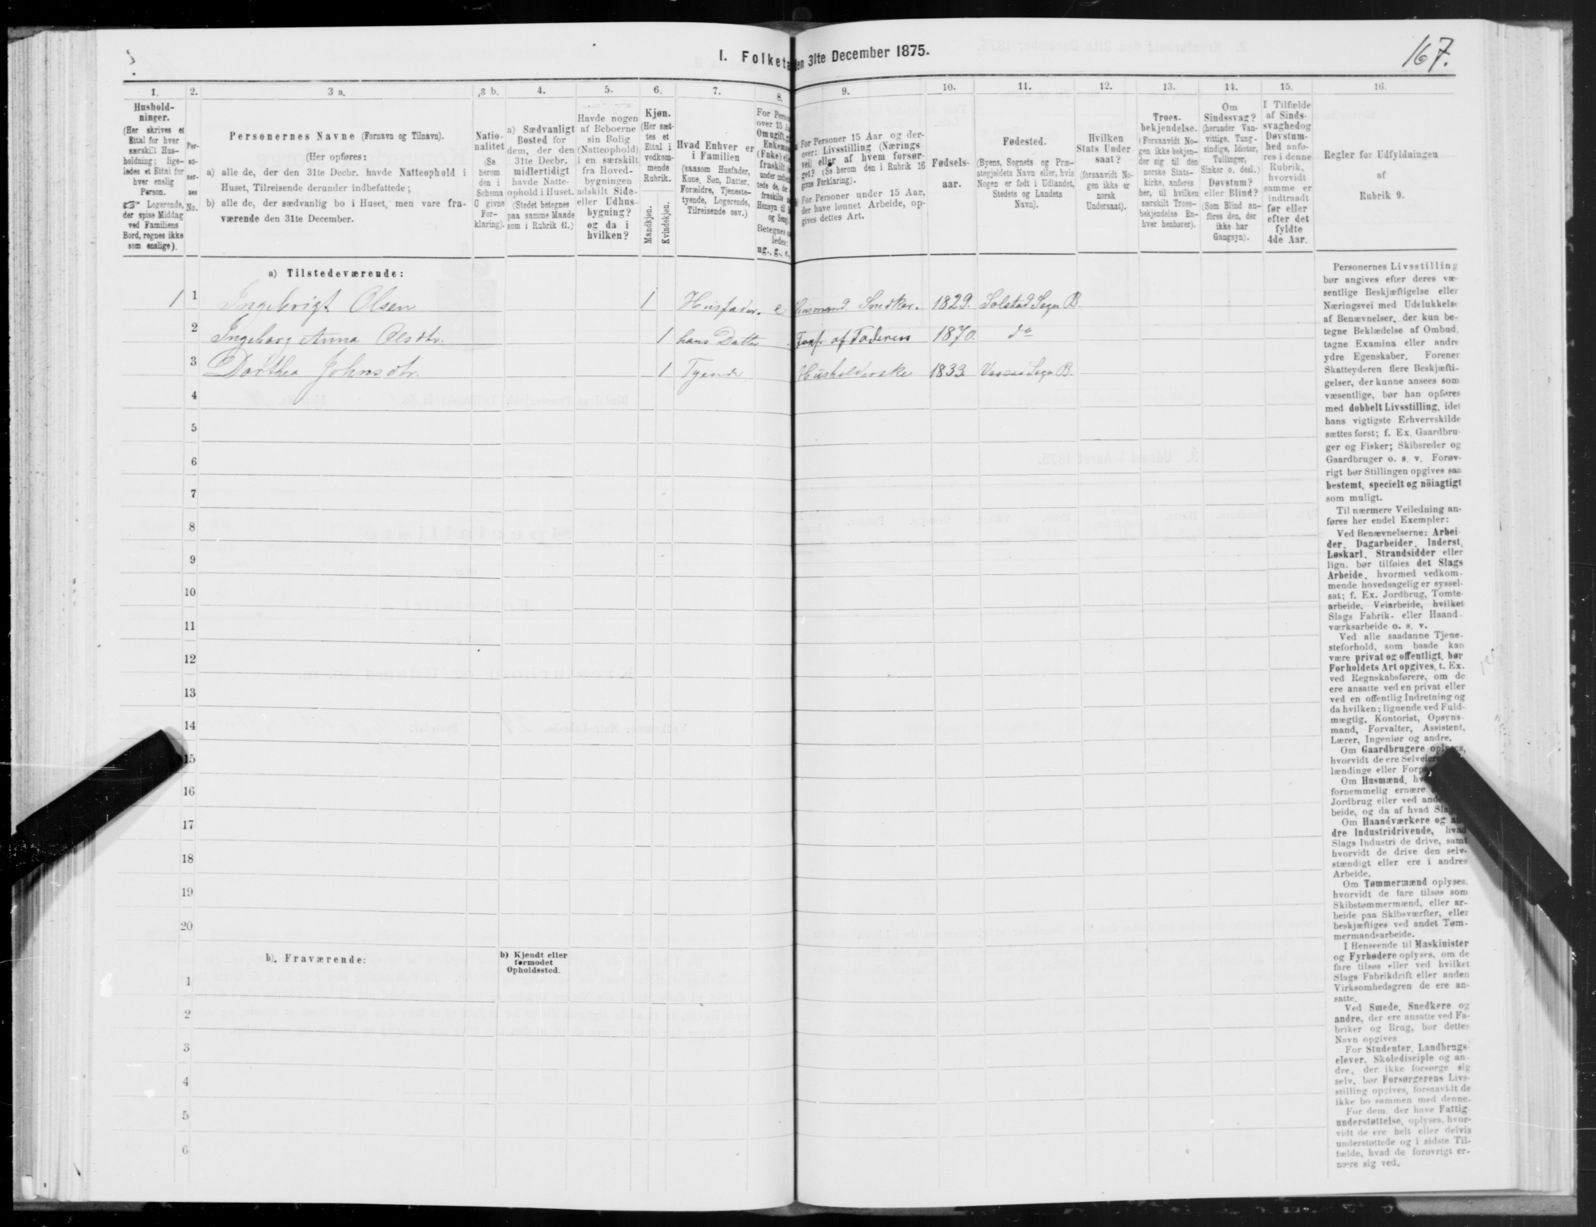 167.
I. Folketæ
en 31te December 1875.
1.
2.
3 a.
3 b.
4.
5.
6.
7.
8.
9.
10.
11.
12.
13.
14.
15.
16.
Hushold-
ninger.
(Her skrives et
Ettal for hver
særskilt Hus-
holdning; lige-
ledes et Ettal for
hver enslig
Person.
☞ Logerende,
der spise Middag
ved Familiens
Bord, regnes ikke
som enslige).
Per-
so-
ner-
nes
No.
Personernes Navne (Fornavn og Tilnavn).
(Her opføres:
a) alle de, der den 31te Decbr. havde Natteophold i
Huset, Tilreisende derunder indbefattede;
b) alle de, der sædvanlig bo i Huset, men vare fra-
værende den 31te December.
Natio-
nalitet
(Se
herom
den i
Schema
C givne
For-
klaring).
a) Sædvanligt
Bosted for
dem, der den
31te Decbr.
midlertidigt
havde Natte-
ophold i Huset.
(Stedet betegnes
paa samme Maade
som i Rubrik 11.)
Havde nogen
af Beboerne
sin Bolig
(Natteophold)
i en særskilt
fra Hoved-
bygningen
adskilt Side-
eller Udhus-
bygning?
og da i
hvilken?
Kjøn.
(Her sæt-
tes et
Ettal i
vedkom-
mende
Rubrik.
Mandkjøn.
Kvindekjøn.
Hvad Enhver er
i Familien
(saasom Husfader,
Kone, Søn, Datter,
Forældre, Tjeneste-
tyende, Logerende,
Tilreisende osv.)
For Perso
over 15 A
Om ugift, g
Enkema
(Fake) el
fraskilt
og Seng
Betegnes
ledes:
ug., g., e.
For Personer 15 Aar og der-
over: Livsstilling (Nærings
vei) eller af hvem forsør-
get? (Se herom den i Rubrik 16
givne Forklaring).
For Personer under 15 Aar,
der have lønnet Arbeide, op-
gives dettes Art.
Fødsels-
aar.
Fødested.
(Byens, Sognets og Præ-
stegjeldets Navn eller, hvis
Nogen er født i Udlandet,
Stedets og Landets
Navn).
Hvilken
Stats Under
saat?
(forsaavidt No-
gen ikke er
norsk
Undersaat).
Troes-
bekjendelse.
(Forsaavidt No-
gen ikke bekjen-
der sig til den
norske Stats-
kirke, anføres
her, til hvilken
særskilt Troes-
bekjendelse En-
hver henhører).
Om
Sindssvag?
(herunder Van-
vittige, Tung-
sindige, Idioter,
Tullinger,
Sinker o. desl.)
Døvstum?
eller Blind?
(Som Blind an-
føres den, der
ikke har
Gangsyn).
I Tilfælde
af Sinds-
svaghed og
Døvstum-
hed anfø-
res i denne
Rubrik,
hvorvidt
samme er
indtraadt
før eller
efter det
fyldte
4de Aar.
Regler for Udfyldningen
af
Rubrik 9.
a) Tilstedeværende:
1 1 Ingebrigt Olsen 1 Husfader. e Husmand Snedker. 1829. Solstad Sogn B.
2 Ingeborg Anna Olsdtr. 1 hans Datter Fors. af Faderen 1870. do
3 Dorthea Johnsdtr. 1 Tyende Husholderske 1833 Sogn B.
4
5
6
7
8
9
10
11
12
13
14
15
16
17
18
19
20
b). Fraværende:
b) Kjendt eller
formodet
Opholdssted.
1
2
3
4
5
6
Personernes Livsstilling
bør angives efter deres væ-
sentlige Beskjæftigelse eller
Næringsvei med Udelukkelse
af Benævnelser, der kun be-
tegne Beklædelse af Ombud,
tagne Examina eller andre
ydre Egenskaber. Forener
Skatteyderen flere Beskjæfti-
gelser, der kunne ansees som
væsentlige, bør han opføres
med dobbelt Livsstilling, idet
hans vigtigste Erhvervskilde
sættes først; f. Ex. Gaardbru-
ger og Fisker; Skibsreder og
Gaardbruger o. s. v. Forøv-
rigt bør Stillingen opgives saa
bestemt, specielt og nöiagtigt
som muligt.
Til nærmere Veiledning an-
føres her endel Exempler:
Ved Benævnelserne: Arbei-
der, Dagarbeider, Inderst,
Løskarl, Strandsidder eller
lign. bør tilføies det Slags
Arbeide, hvormed vedkom-
mende hovedsagelig er syssel-
sat; f. Ex. Jordbrug, Tomte-
arbeide, Veiarbeide, hvilket
Slags Fabrik- eller Haand-
værksarbeide o. s. v.
Ved alle saadanne Tjene-
steforhold, som baade kan
være privat og offentligt, bør
Forholdets Art opgives, t. Ex.
ved Regnskabsførere, om de
ere ansatte ved en privat eller
ved en offentlig Indretning og
da hvilken; lignende ved Fuld-
mægtig, Kontorist, Opsyns-
mand, Forvalter, Assistent,
Lærer, Ingeniør og andre.
Om Gaardbrugere oplyses,
hvorvidt de ere Selveiere,
lændinge eller Forp
Om Husmænd, h
fornemmelig ernære
Jordbrug eller ved and
beide, og da af hvad Slags
Om Haandværkere og an-
dre Industridrivende, hvad
Slags Industri de drive, samt
hvorvidt de drive den selv-
stændigt eller ere i andres
Arbeide.
Om Tømmermænd oplyses,
hvorvidt de fare tilsøs som
Skibstømmermænd, eller ar-
beide paa Skibsværfter, eller
beskjæftiges ved andet Tøm-
mermandsarbeide.
I Henseende til Maskinister
og Fyrbødere oplyses, om de
fare tilsøs eller ved hvilket
Slags Fabrikdrift eller anden
Virksomhedsgren de ere an-
satte.
Ved Smede, Snedkere og
andre, der ere ansatte ved Fa-
briker og Brug, bør dettes
Navn opgives
For Studenter, Landbrugs-
elever, Skoledisciple og an-
dre, der ikke forsørge sig
selv, bør Forsørgerens Livs-
stilling opgives, forsaavidt de
ikke bo sammen med denne.
For dem, der have Fattig-
understøttelse, oplyses, hvor-
vidt de ere helt eller delvis
understøttede og i sidste Til-
fælde, hvad de forøvrigt er-
nære sig ved.